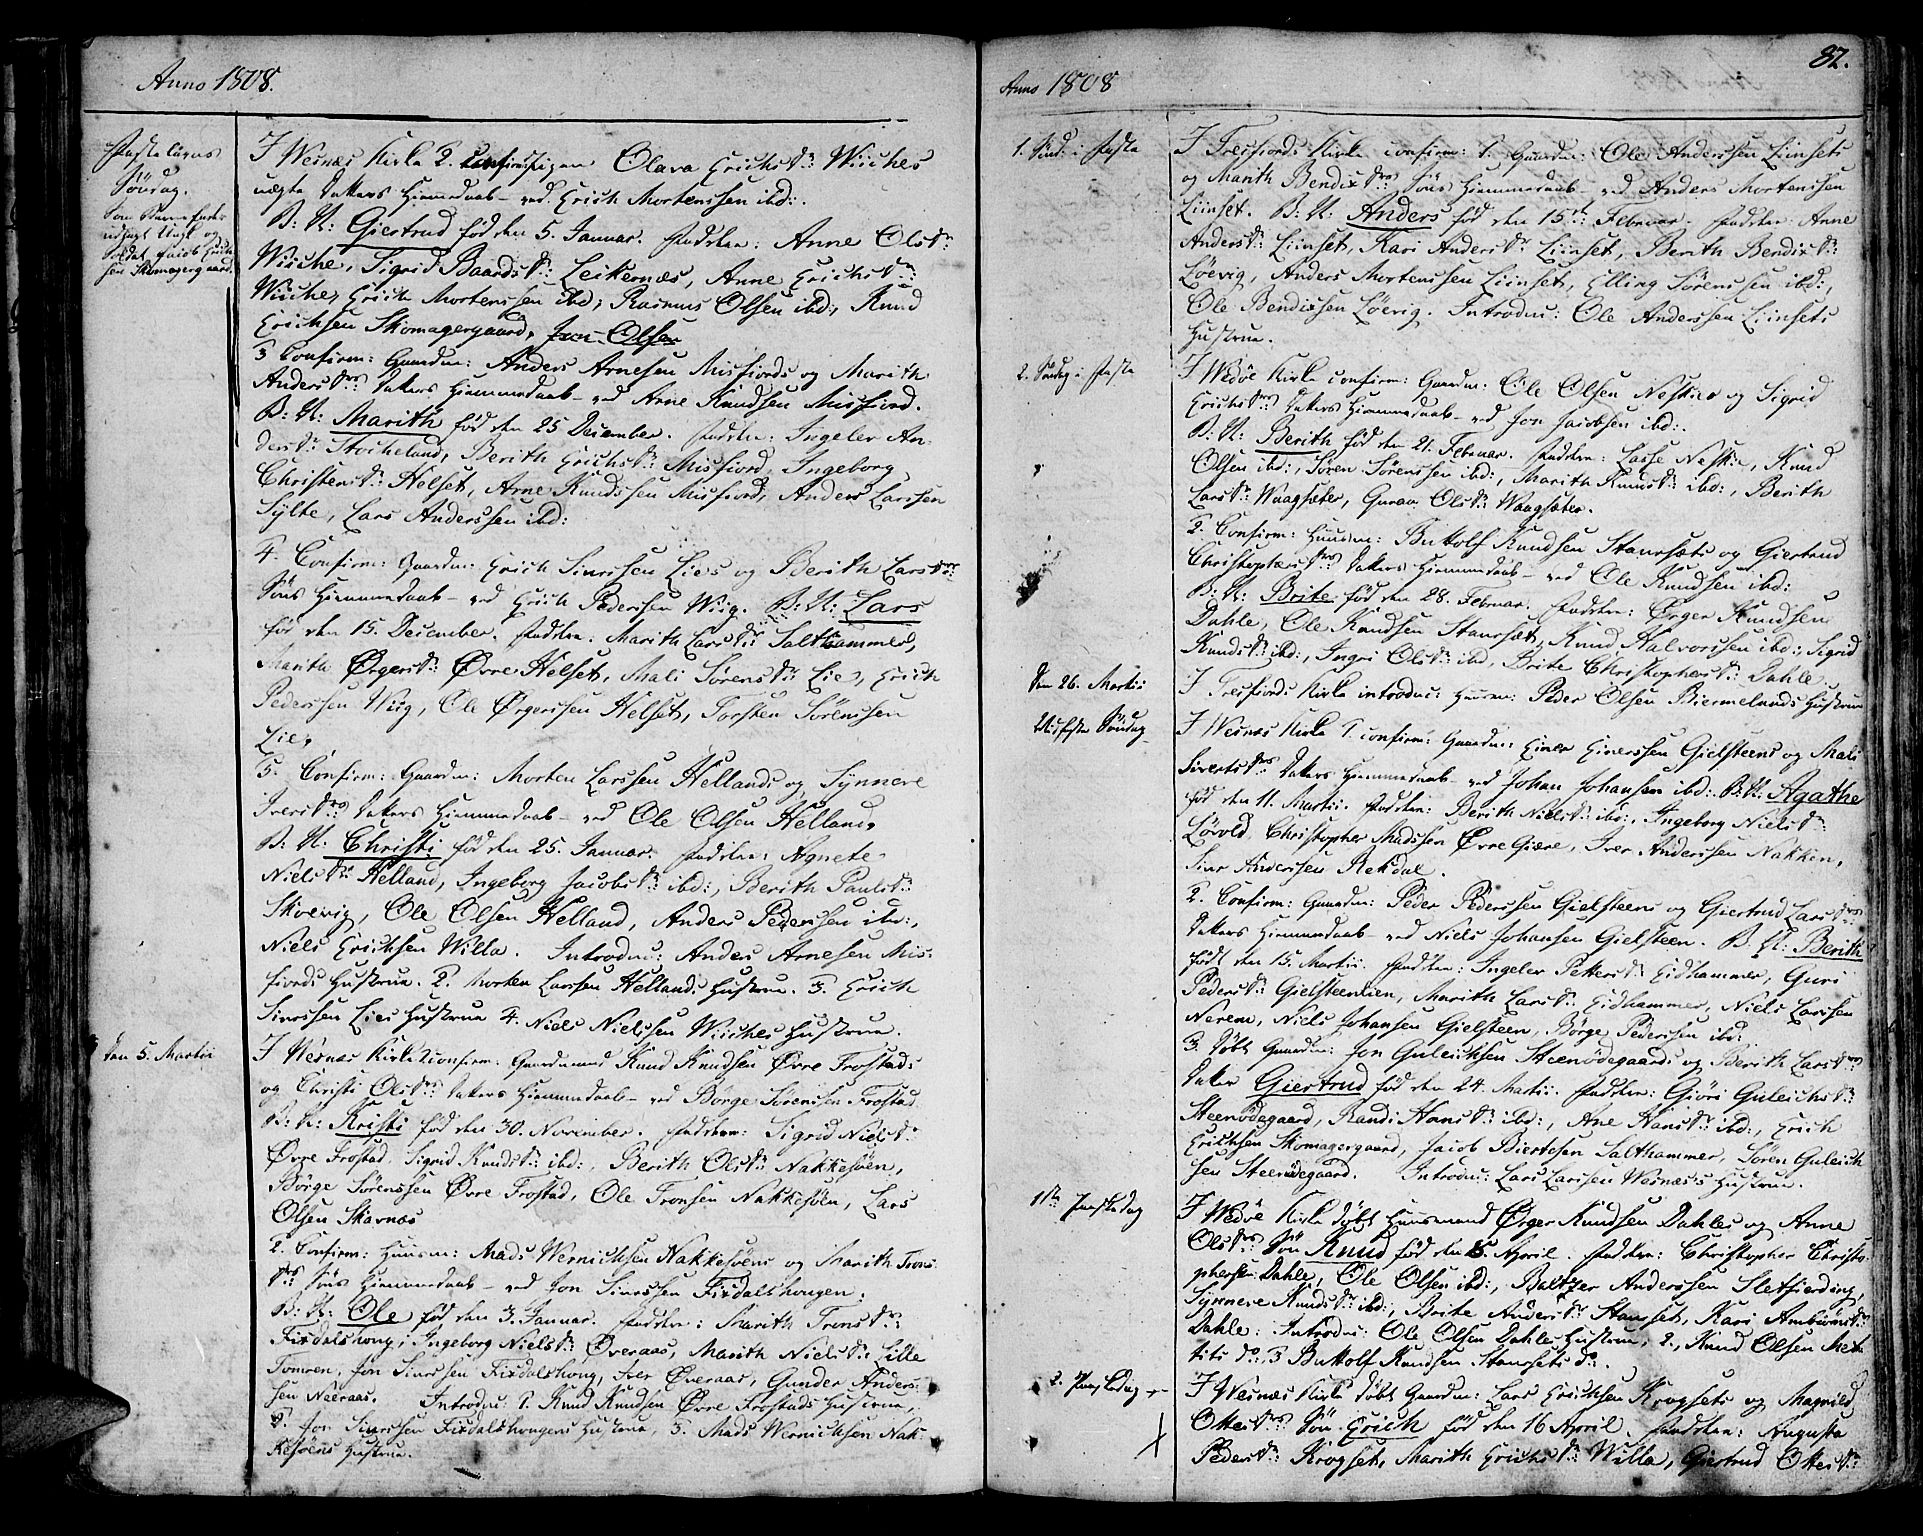 Anno 1808.
Fastelavns
Söndag.
Som Barnefader
udlagt Ungk: og
Soldat Jacob Erich-
sen Skomagergaard.
I Wesnæs Kirke 2. Confirm: Pigen Olava Erichsdr Wiiches
uægte Datters Hiemmedaab ved Erich Mortenssen ibd:.
B: N: Giertrud fød den 5. Januar. Faddere: Anne Olsdr:
Wiiche, Sigrid Baardsdr: Leikernæs, Anne Erichsdr:
Wiiche, Erich Mortenssen ibd:, Rasmus Olsen ibd:, Knud
Erichsen Skomagergaard, Jon Olsen
3 Confirm: Gaardm: Anders Arnesen Misfiords og Marith
Andersdrs Datters Hiemmedaab ved Arne Knudsen Misfiord.
B: N: Marith fød den 25 December. Faddere: Ingeler An-
dersdr Stocheland, Berith Erichsdr: Misfiord, Ingeborg
Christensdr: Helset, Arne Knudssen Misfiord, Anders Larssen
Sylte, Lars Anderssen ibd:
4. Confirm: Gaardm: Erich Siurssen Lies og Berith Larsdrs
Söns Hiemmedaab ved Erich Pederssen Wiig. B: N: Lars
fød den 15. December. Faddere: Marith Larsdr: Salthammer,
Marith Ørgersdr: Øvre Helset, Mali Sörensdr: Lie, Erich
Pederssen Wiig, Ole Ørgerssen Helset, Torsten Sörenssen
Lie.
5. Confirm: Gaardm: Morten Larssen Hellands og Synnere
Iversdrs Datters Hiemmedaab ved Ole Olsen Helland.
B: N: Christi fød den 25. Januar. Faddere: Agnete
Nielsdr: Helland, Ingeborg Jacobsdr: ibd:, Berith Paulsdr:
Skorvig, Ole Olsen Helland, Anders Pederssen ibd:,
Niels Erichsen Willa. Introdu: Anders Arnesen Mis-
fiords Hustrue. 2. Morten Larssen Hellands Hustrue. 3. Erich
Siurssen Lies Hustrue 4. Niels Nielssen Wiiches Hustrue.
Den 5. Martii
I Wesnæs Kirke 1 confirm: Gaardmand Knud Knudsen Øvre Frostads
og Christi Olsdrs Datters Hiemmedaab ved Börge Sörenssen Frostad
B: N: Kristi fød den 30. November. Faddere: Sigrid Nielsdr:
Øvre Frostad, Sigrid Knudsdr: ibd:, Berith Olsdr: Nakkesöen,
Börge Sörenssen Øvre Frostad, Ole Tronsen Nakkesöen, Lars
Olsen Skarnæs
2. Confirm: Huusm: Mads Wernichsen Nakkesöens og Marith Trons-
drs Söns Hiemmedaab ved Jon Siurssen Fixdalshougen.
B: N: Ole fød den 3. Januar. Faddere: Marith Tronsdr:
Fixdalshoug, Ingeborg Nielsdr: Øveraas, Marith Nielsdr: Lille
Tomren, Jon Siurssen Fixdalshoug, Iver Øveraas, Gunder Anders-
sen Neeraas. Introdu: 1. Knud Knudsen Øvre Frostads Hustrue,
2. Jon Siurssen Fixdalshougens Hustrue, 3. Mads Wernichsen Nak-
kesöens Hustrue.
Anno 1808
82.
1. Sönd: i Faste
I Tresfiords Kirke confirm: 1. Gaardm: Ole Anderssen Liinsets
og Marith Bendixdrs Söns Hiemmedaab ved Anders Mortenssen
Liinset. B: N: Anders fød den 15de Februar. Faddere: Anne
Andersdr: Liinset, Kari Andersdr Liinset, Berith Bendixdr:
Löevig, Anders Mortenssen Liinset, Elling Sörenssen ibd:,
Ole Bendixsen Löevig. Introdu: Ole Anderssen Liinsets
Hustrue.
2. Söndag i Faste
I Wedöe Kirke confirm: Gaardm: Ole Olsen Neskies og Sigrid
Erichsdrs Datters Hiemmedaab ved Jon Jacobsen ibd:.
B: N: Berith fød den 21. Februar. Faddere: Lasse Neskie, Knud
Olsen ibd:, Sören Sörenssen ibd:, Marith Knudsdr: ibd:, Berith
Larsdr: Waagsæter, Guraa Olsdr: Waagsæter.
2. Confirm: Huusm: Buttolf Knudsen Staursæts og Giertrud
Christophersdrs Datters Hiemmedaab ved Ole Knudsen ibd:
B: N: Brite fød den 28. Februar. Faddere: Ørger Knudsen
Dahle, Ole Knudsen Staursæt, Knud Halvorssen ibd:, Sigrid
Knudsdr: ibd:, Ingri Olsdr: ibd, Brite Christophersdr: Dahle.
Den 26. Martii
I Tresfiords Kirke introdu: Huusm: Peder Olsen Biermelands Hustrue
Midfaste Söndag
I Wesnæs Kirke 1. confirm: Gaardm: Einer Einerssen Gielsteens og Mali
Sivertsdrs Datters Hiemmedaab ved Johan Johansen ibd: B: N: Agathe
fød den 11. Martii. Faddere: Berith Nielsdr: ibd:, Ingeborg Nielsdr:
Lövold, Christopher Madssen Øvre Giære, Iver Anderssen Nakken,
Siur Anderssen Rekdal.
2. Confirm: Gaardm: Peder Pederssen Gielsteens og Giertrud Larsdrs
Datters Hiemmedaab ved Niels Johansen Gielsteen. B: N: Berith
født den 15. Martii. Faddere: Ingeler Pettersdr: Eidhammer, Guri
Pedersdr: Gielsteenlien, Marith Larsdr: Eidhammer, Niels Larssen
Nerem, Niels Johansen Gielsteen, Börge Pederssen ibd:
3. Döbt Gaardm: Jon Guleichsen Steenödegaards og Berith Larsdrs
Datter Giertrud fød den 24. Martii. Faddere: Giöri Guleichsdr:
Steenödegaard, Randi Hansdr: ibd:, Ane Hansdr: ibd:, Erich
Erichsen Skomagergaard, Jacob Biertelsen Salthammer, Sören Guleich-
sen Steenödegaard. Introdu: Lars Larssen Wesnæs's Hustrue.
1ste Paaskedag
I Wedöe Kirke döbt Huusmand Ørger Knudsen Dahles og Anne
Olsdrs Sön Knud fød den 5. April. Faddere: Christopher Christo-
phersen Dahle, Ole Olsen ibd:, Baltzer Anderssen Sletfierding,
Synnere Knudsdr ibd:, Brite Andersdr Staursæt, Kari Ambiörnsdr:
Dahle: Introdu: Ole Olsen Dahles Hustrue, 2, Knud Olsen Met-
tets do:, 3 Buttolf Knudsen Staursets do:.
2. Paaskedag
I Wesnæs Kirke döbt Gaardm: Lars Erichsen Krogsets og Magnild
Ottersdrs Sön Erich fød den 16 April. Faddere: Augusta
Pedersdr: Krogset, Marith Erichsdr: Willa, Giertrud Ottersdr: